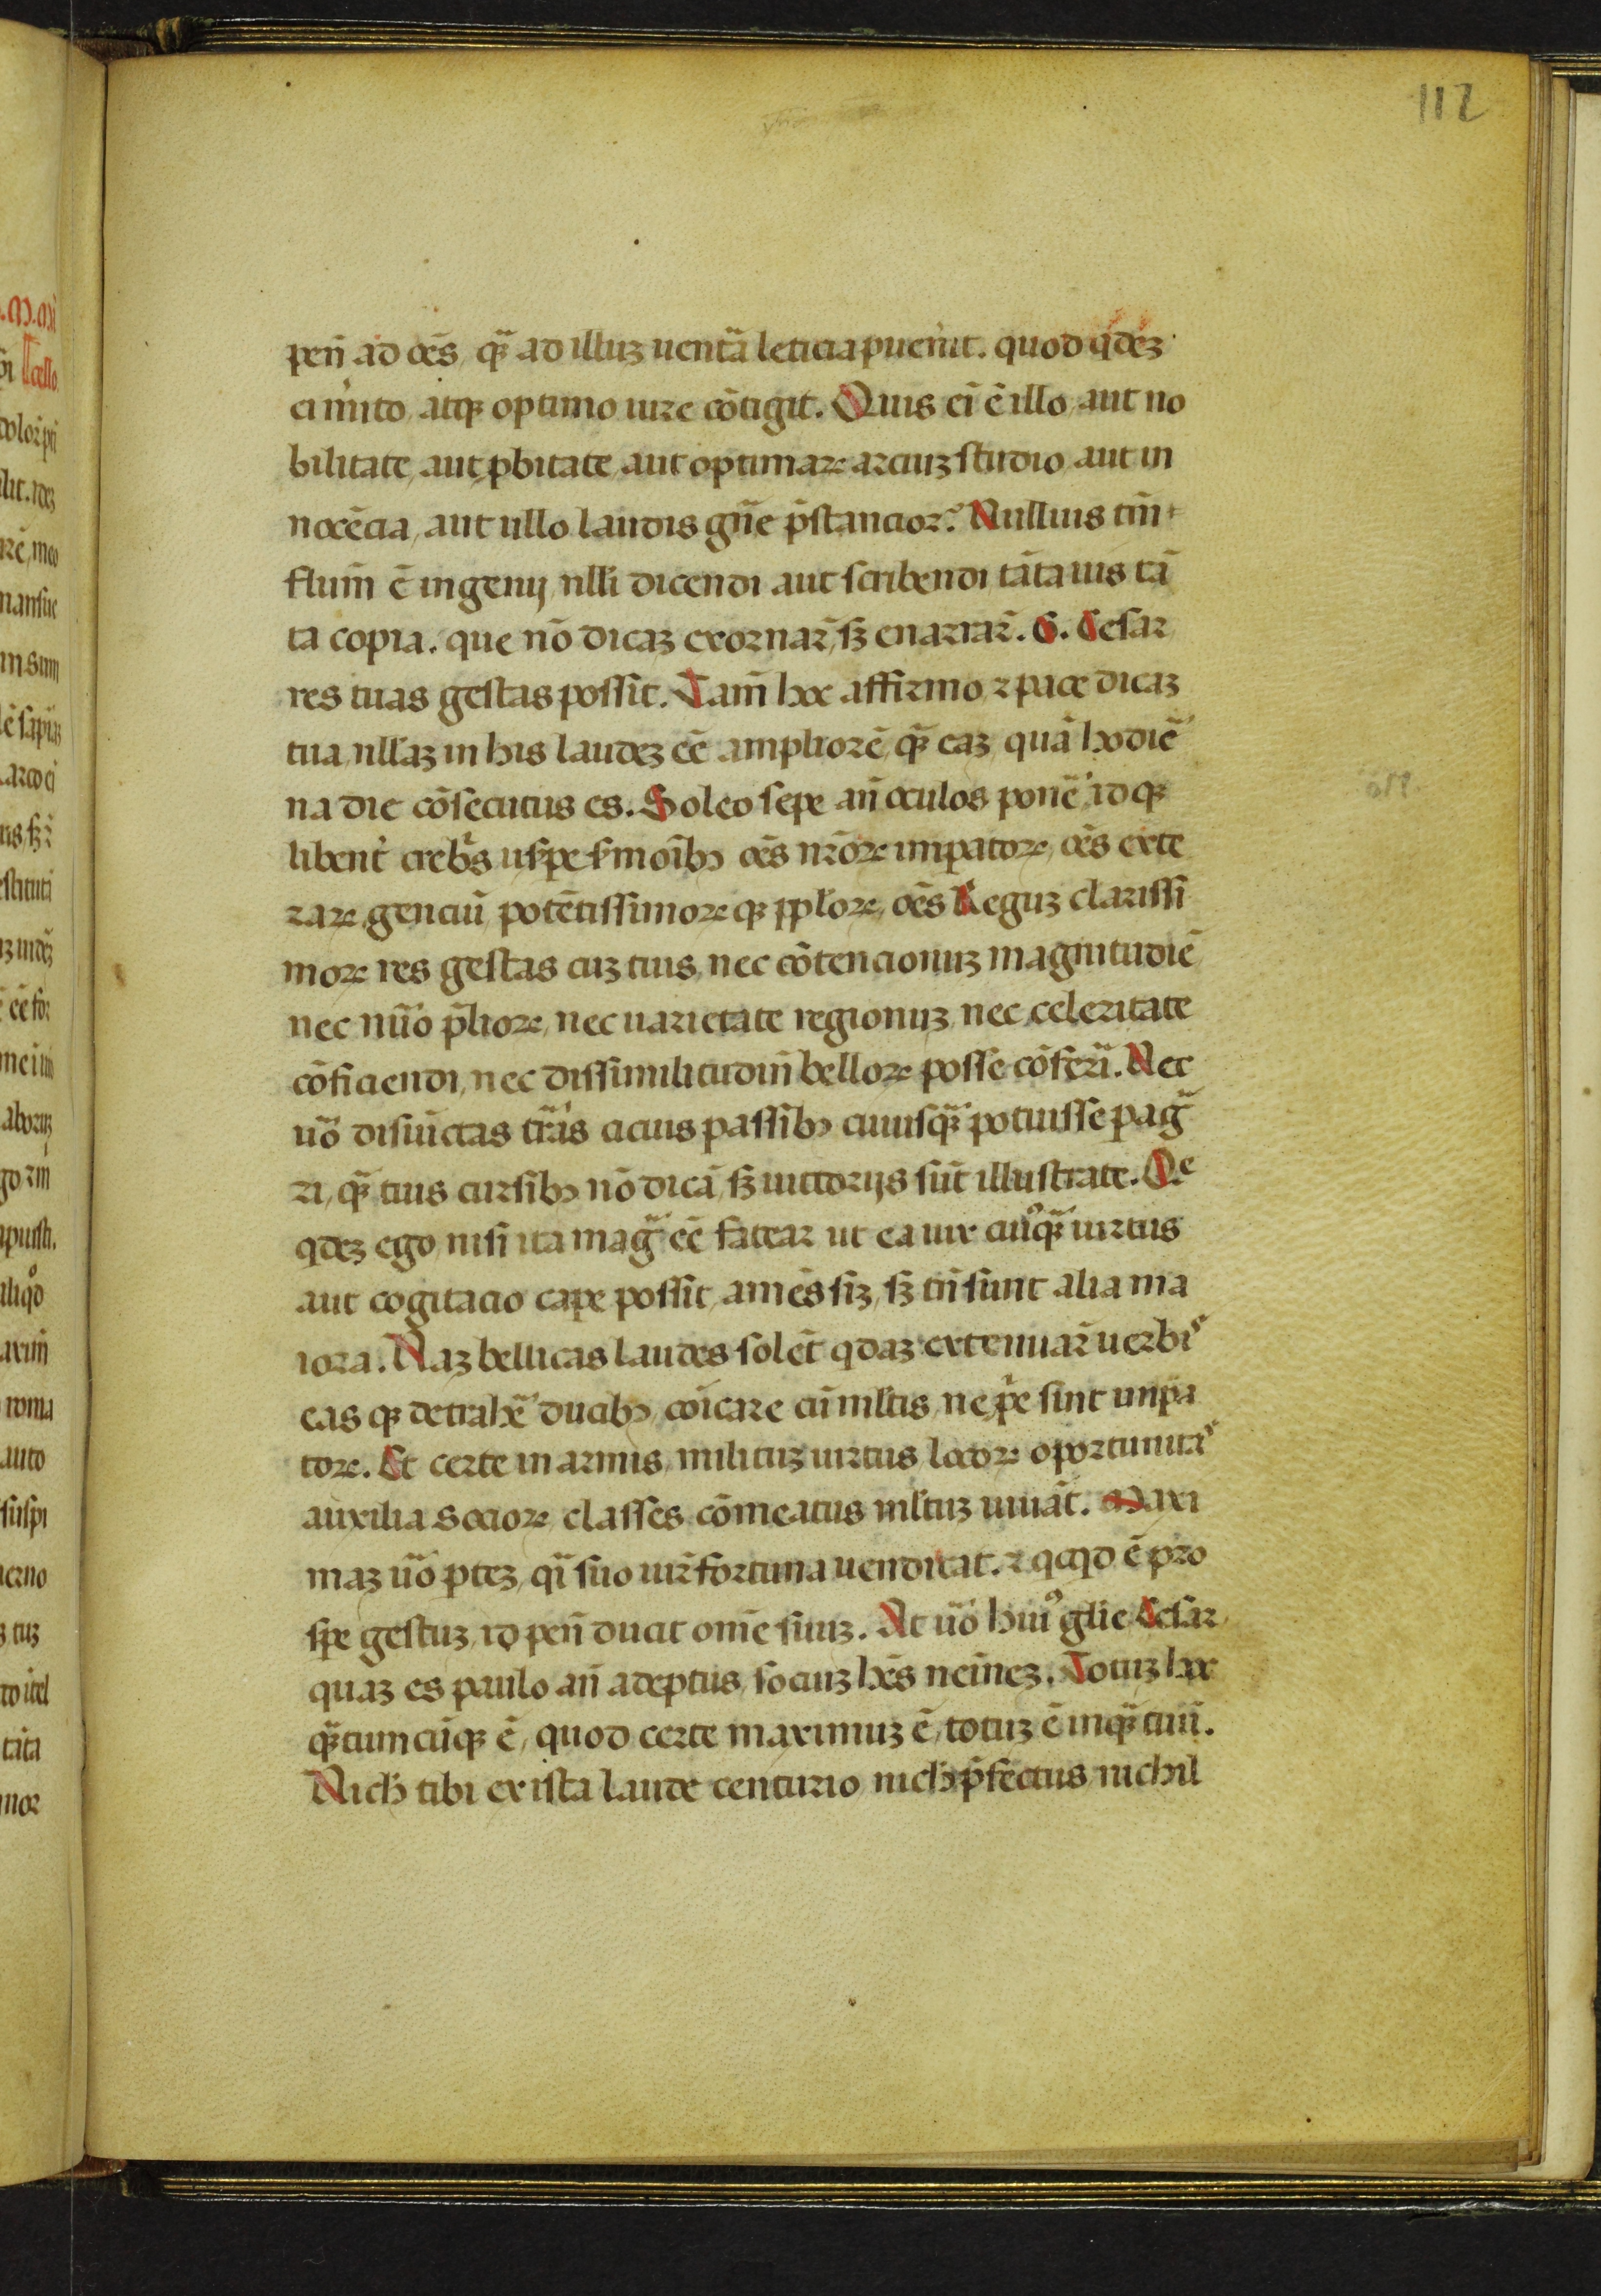 112
penͥ ad oēs, qᷓ ad illuz uentᷓa leticia puenͥit. quod qͥdez
ei mͥito, atqꝫ optimo iure cōtigit. Quis eͥ ē illo, aut no
bilitate, aut pbitate, aut optimaꝝ arciuz studio, aut in
nocēcia, aut ullo laudis gn̄e p̄stancior? Nullius tm̄
flum̄ ē ingenij, nlli dicendi aut scribendi tāta uis tā
ta copia. que nō dicaz exornar̄, sꝫ enarrar̄. G. Cesar
res tuas gestas possit. Tam̄ hoc affirmo ⁊ pace dicaz
tua, nllaz in his laudez eē ampliorē qᷓ eaz, quā hodiē
na die cōsecutus es. Soleo sepe an̄ oculos ponē, idqꝫ
libent͛ crebͥs usꝑpe smōibꝫ oēs nr̄oꝝ impatoꝝ, oēs exte
raꝝ genciū potētissimoꝝqꝫ pploꝝ, oēs Reguz clarissi
moꝝ res gestas cuz tuis, nec cōtencionuz magnitudiē
nec nūo p̄lioꝝ, nec uarietate regionuz nec celeritate
cōficiendi, nec dissimilitudin̄ belloꝝ posse cōferͥi. Nec
uō disiūctas tr̄as cicius passibꝫ cuiusqᷓ potuisse pagᷓ
ri, qᷓ tuis cursibꝫ nō dicā, sꝫ uictorijs sūt illustrate. Qᵉ
qdez ego nisi ita magᷓ eē fatear ut ea uix cuiꝰqᷓ uirtus
aut cogitacio cape possit, amēs siz, sꝫ tn̄ sunt alia ma
iora. Naz bellicas laudes solēt qdaz extenuar̄ uerbiˢ
easqꝫ detrahē ducibꝫ, cōicare cū mltis, ne pͥe sint impa
toꝝ. Et certe in armis, milituz uirtus, locoꝝ oportunitaˢ
auxilia socioꝝ, classes, cōmeatus mltuz iuuāt. Maxi
maz uō ptez, qͣi suo iur̄ fortuna uendicat. ⁊ qcqd ē pro
spe gestuz, id pen̄ ducit om̄e suuz. At uō huiꝰ glie Cesar
quaz es paulo an̄ adeptus, sociuz hēs neīnez. Totuz hoc
qᷓtumcūqꝫ ē, quod certe maximuz ē, totuz ē inqᷓ tuū.
Nich tibi ex ista laude centurio, nich p̄fectus, nichil